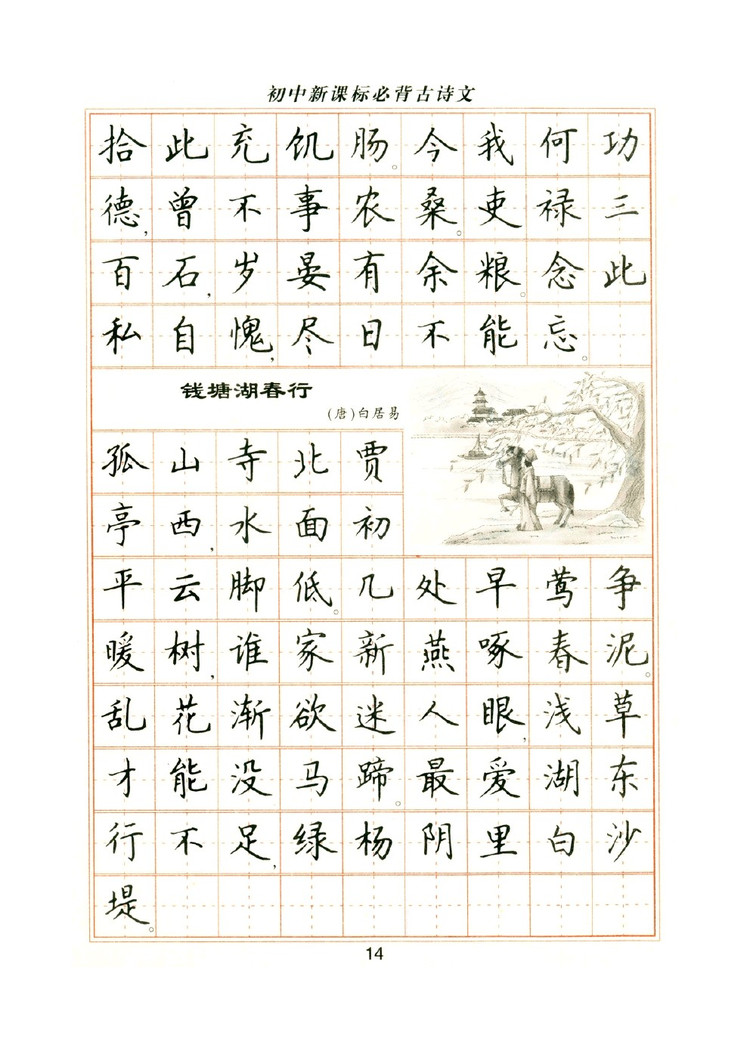 初中新课标必背古诗文
拾此充饥肠。今我何功
德,曾不事农桑。吏禄三
百石,岁晏有余粮。念此
私自愧,尽日不能忘。
钱塘湖春行
(唐)白居易
孤山寺北贾
亭西,水面初
平云脚低。几处早莺争
暖树,谁家新燕啄春泥。
乱花渐欲迷人眼,浅草
才能没马蹄。最爱湖东
行不足,绿杨阴里白沙
堤。
14